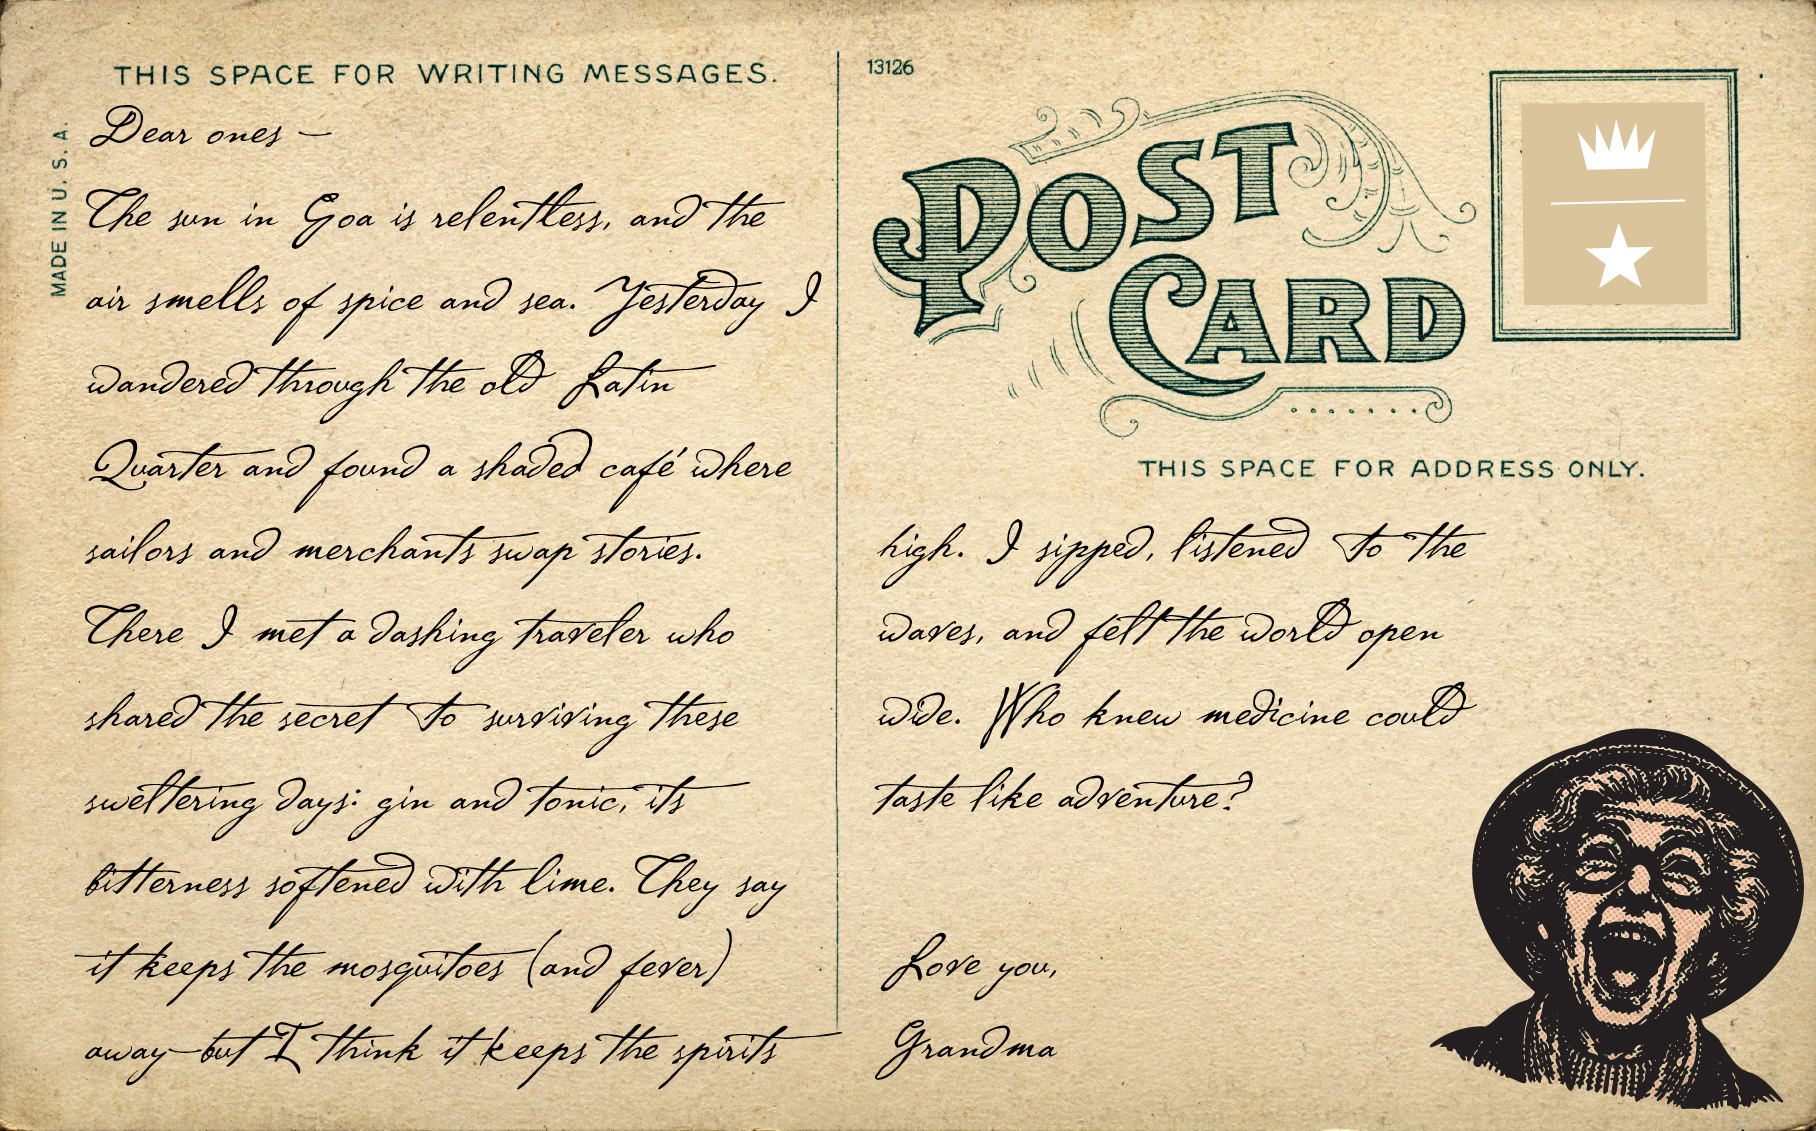 THIS SPACE FOR WRITING MESSAGES.
MADE IN U. S. A.
Dear ones –
The sun in Goa is relentless, and the
air smells of spice and sea. Yesterday I
wandered through the old Latin
Quarter and found a shaded café where
sailors and merchants swap stories.
There I met a dashing traveler who
shared the secret to surviving these
sweltering days: gin and tonic, its
bitterness softened with lime. They say
it keeps the mosquitoes (and fever)
away—but I think it keeps the spirits
13126
POST
CARD
THIS SPACE FOR ADDRESS ONLY.
high. I sipped, listened to the
waves, and felt the world open
wide. Who knew medicine could
taste like adventure?
Love you,
Grandma